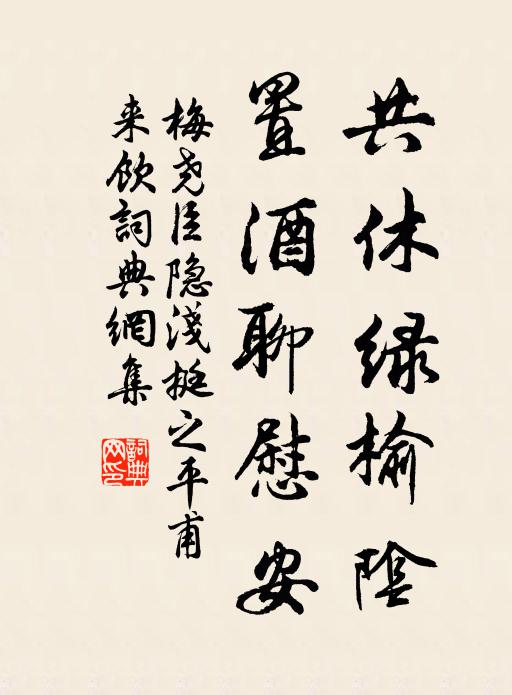 共休绿榆陰
置酒聊慰安
梅尧臣隐淺挺之平甫
来飲詞典網集
詞典網印